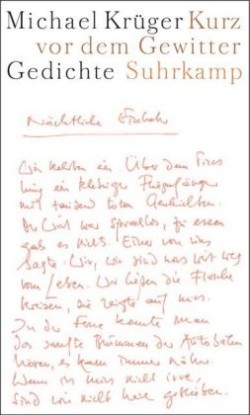 Michael Krüger Kurz
vor dem Gewitter
Gedichte Suhrkamp
Nächtliche Einkehr
Wir kehrten ein. Über dem Tresen
hing ein klebriger Fliegenfänger
mit tausend toten Geschichten.
Der Wirt war sprachlos, zu essen
gab es nichts. Einer von uns
sagte: Wir, wir sind nass weit weg
vom Leben. Wir ließen die Flasche
kreisen, sie zeigte auf uns.
In der Ferne konnte man
das sanfte Brummen der Autobahn
hören, es kam immer näher.
Wenn ich mich nicht irre,
sind wir nicht lange geblieben.